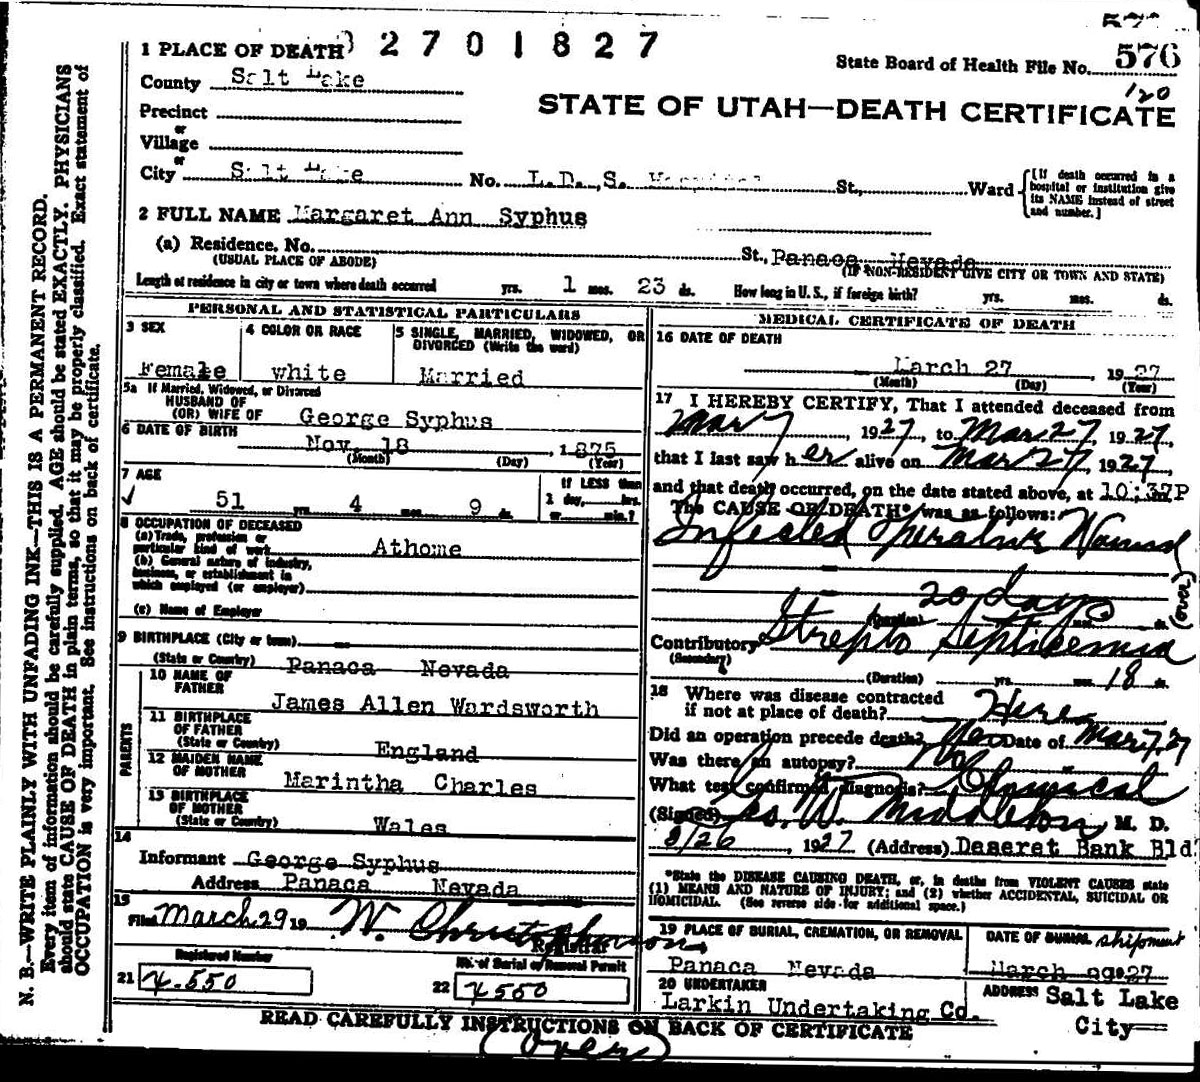 576
1 PLACE OF DEATH 2701827
State Board of Health File No. 576
120
County Salt Lake
STATE OF UTAH—DEATH CERTIFICATE
Precinct
or
Village
or
City Salt Lake No. L.D.S. Hospital St., Ward [If death occurred in a hospital or institution give its NAME instead of street and number.]
2 FULL NAME Margaret Ann Syphus
(a) Residence. No. St., Panaca Nevada
(USUAL PLACE OF ABODE) (IF NON-RESIDENT GIVE CITY OR TOWN AND STATE)
Length of residence in city or town where death occurred yrs. 1 mos. 23 ds. How long in U. S., if foreign birth? yrs. mos. ds.
PERSONAL AND STATISTICAL PARTICULARS
3 SEX 4 COLOR OR RACE 5 SINGLE, MARRIED, WIDOWED, OR DIVORCED (Write the word)
Female white Married
5a If Married, Widowed, or Divorced
HUSBAND OF
(OR) WIFE OF George Syphus
6 DATE OF BIRTH Nov. 18, 1875
(Month) (Day) (Year)
7 AGE
51 yrs. 4 mos. 9 ds.
If LESS than
1 day, hrs.
or min.?
8 OCCUPATION OF DECEASED
(a) Trade, profession or
particular kind of work Athome
(b) General nature of industry,
business, or establishment in
which employed (or employer)
(c) Name of Employer
9 BIRTHPLACE (City or town)
(State or Country) Panaca Nevada
PARENTS
10 NAME OF
FATHER James Allen Wardsworth
11 BIRTHPLACE
OF FATHER
(State or Country) England
12 MAIDEN NAME
OF MOTHER Marintha Charles
13 BIRTHPLACE
OF MOTHER
(State or Country) Wales
14
Informant George Syphus
Address Panaca Nevada
15
Filed March 29 19 W. Christopherson
Registrar
Registered Number
21 4.550
No. of Burial or Removal Permit
22 4550
MEDICAL CERTIFICATE OF DEATH
16 DATE OF DEATH
March 27 1927
(Month) (Day) (Year)
17 I HEREBY CERTIFY, That I attended deceased from
Mar 7, 1927, to Mar 27, 1927,
that I last saw her alive on Mar 27, 1927
and that death occurred, on the date stated above, at 10:37P m.
The CAUSE OF DEATH* was as follows:
Infected operative Wound
(over)
20 days
(Duration) yrs. mos. ds.
Contributory Strepto Septicemia
(Secondary)
(Duration) yrs. mos. 18 ds.
18 Where was disease contracted
if not at place of death? Here
Did an operation precede death? Yes Date of Mar 7, 27
Was there an autopsy? No
What test confirmed diagnosis? Clinical
(Signed) Geo. W. Middleton M. D.
3/26, 1927 (Address) Deseret Bank Bld
*State the DISEASE CAUSING DEATH, or, in deaths from VIOLENT CAUSES state
(1) MEANS AND NATURE OF INJURY; and (2) whether ACCIDENTAL, SUICIDAL OR
HOMICIDAL. (See reverse side for additional space.)
19 PLACE OF BURIAL, CREMATION, OR REMOVAL DATE OF BURIAL shipment
Panaca Nevada March 29 1927
20 UNDERTAKER ADDRESS Salt Lake
Larkin Undertaking Co. City
READ CAREFULLY INSTRUCTIONS ON BACK OF CERTIFICATE
(Over)
N. B.—WRITE PLAINLY WITH UNFADING INK—THIS IS A PERMANENT RECORD.
Every item of information should be carefully supplied. AGE should be stated EXACTLY. PHYSICIANS
should state CAUSE OF DEATH in plain terms, so that it may be properly classified. Exact statement of
OCCUPATION is very important. See instructions on back of certificate.